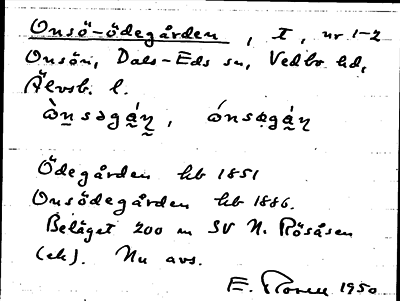 Onsö-ödegården, I, nr 1-2
Onsön, Dals-Eds sn, Vedbo hd,
Älvsb. l.
Ödegården hb 1851
Onsödegården hb 1886.
Beläget 200 m SV N. Rösåsen
(ek). Nu avs.
E. 1950